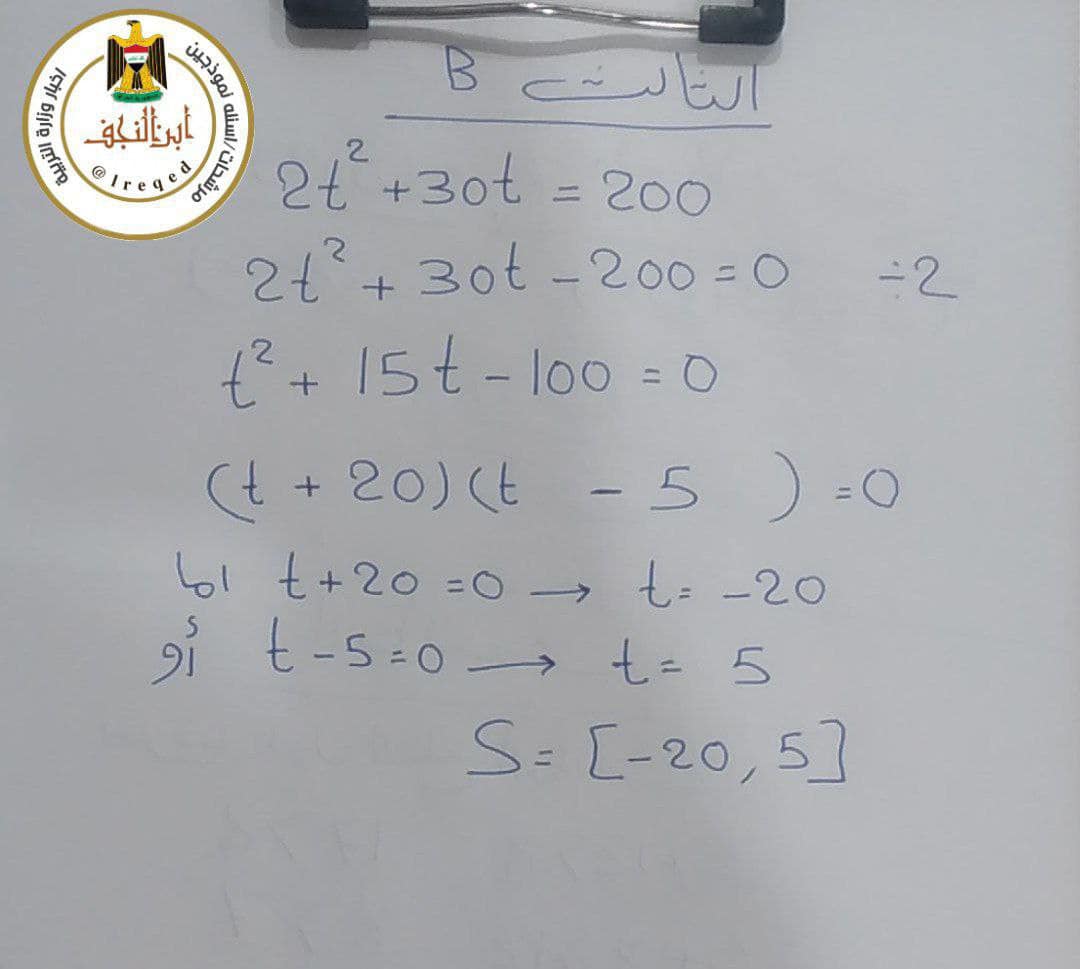 اخبار وزارة التربية
مرشحات/اسئله نموذجين
ابن النجف
@Ireqed
الثالث B
2t² + 30t = 200
2t² + 30t - 200 = 0 ÷2
t² + 15t - 100 = 0
(t + 20)(t - 5 ) = 0
اما t + 20 = 0 → t = -20
أو t - 5 = 0 → t = 5
S = [-20, 5]